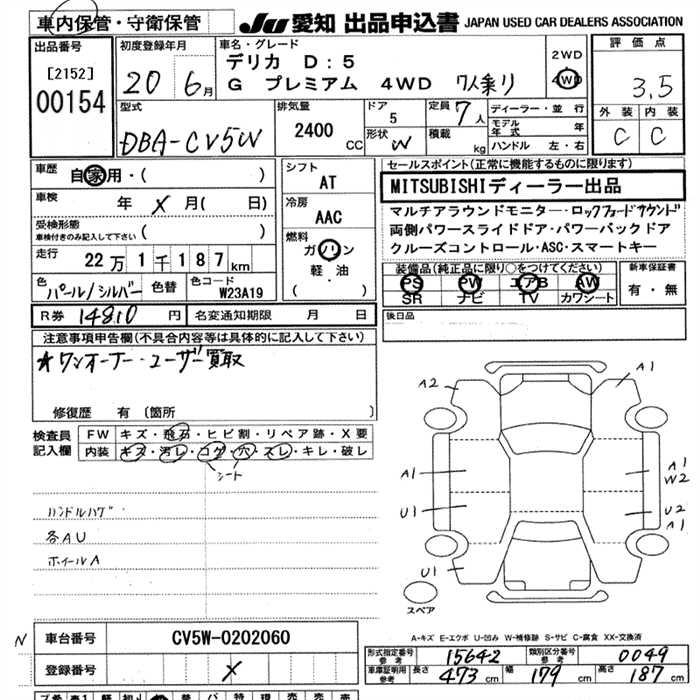 車内保管・守衛保管
JU 愛知 出品申込書 JAPAN USED CAR DEALERS ASSOCIATION
出品番号
[2152]
00154
初度登録年月
20 6月
車名・グレード
デリカ D:5
G プレミアム 4WD 7人乗り
2WD
4WD
評価点
3.5
外装 内装
C C
型式
DBA-CV5W
排気量
2400 CC
ドア
5
形状 W
定員 7人
積載 kg
ディーラー・並行
モデル年式 年
ハンドル 左・右
車歴
自家用・( )
車検
年 X 月( 日)
受検形態
車検付きのみ記入して下さい ( )
走行
22万1千187km
色 パール/シルバー 色替 色コード W23A19
シフト
AT
冷房
AAC
燃料
ガソリン
軽・油
( )
セールスポイント(正常に機能するものに限ります)
MITSUBISHIディーラー出品
マルチアラウンドモニター・ロックフォードサウンド
両側パワースライドドア・パワーバックドア
クルーズコントロール・ASC・スマートキー
装備品(純正品に限り○をつけてください)
PS PW エアB AW
SR ナビ TV カワシート
新車保証書
有・無
R券 14810円 名変通知期限 月 日
後日品
注意事項申告欄(不具合内容等は具体的に記入して下さい)
★ワンオーナー・ユーザー買取
修復歴 有 〔箇所 〕
検査員
記入欄
FW キズ・飛石・ヒビ割・リペア跡・X要
内装 キズ・汚レ・コゲ・穴・スレ・キレ・破レ
シート
ハンドルハゲ
各AU
ホイールA
A2 A1
A1 A1
W2
U1 U2
A1
U1
スペア
A-キズ E-エクボ U-凹み W-補修跡 S-サビ C-腐食 XX-交換済
N
車台番号 CV5W-0202060
登録番号 X
形式指定番号 参考 15642 類別区分番号 参考 0049
車庫証明用 参考 長さ 473cm 幅 179cm 高さ 187cm